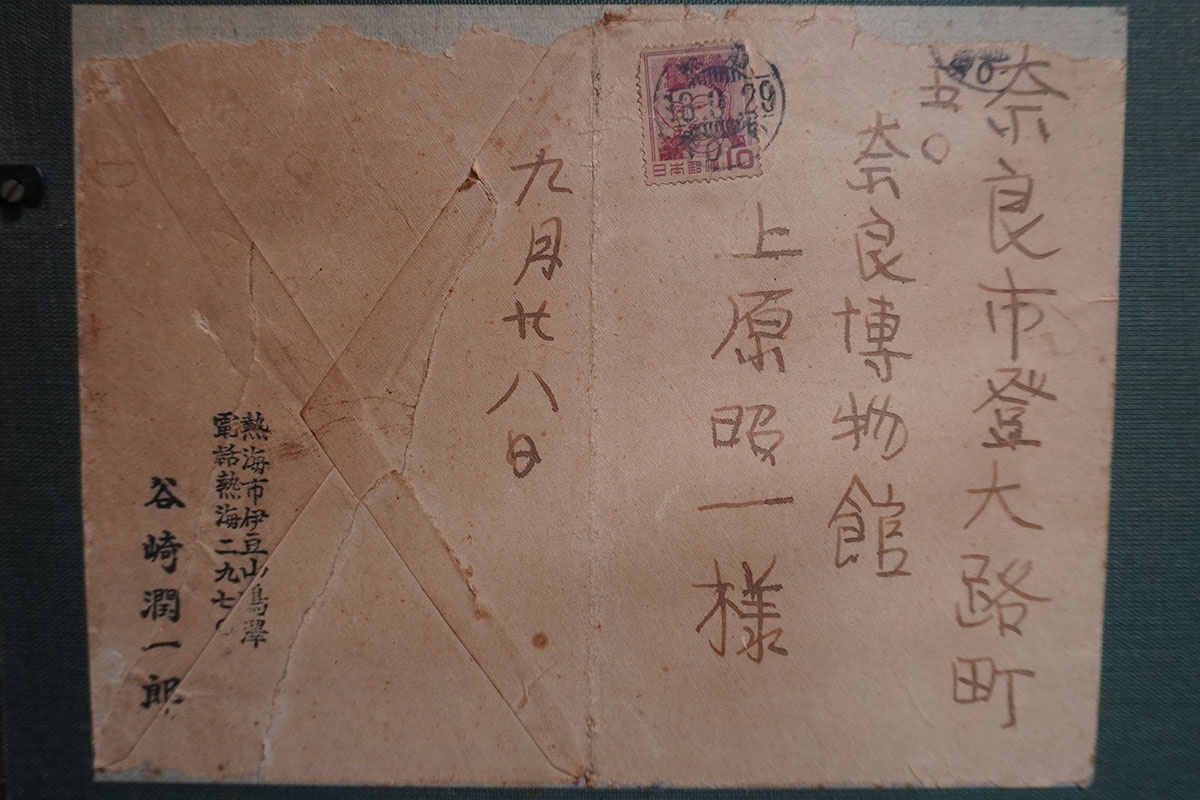 奈良市登大路町
五〇
奈良博物館
上原照一様
日本郵便 10
29
九月廿八日
熱海市伊豆山鳴澤
電話熱海二九七〇
谷崎潤一郎